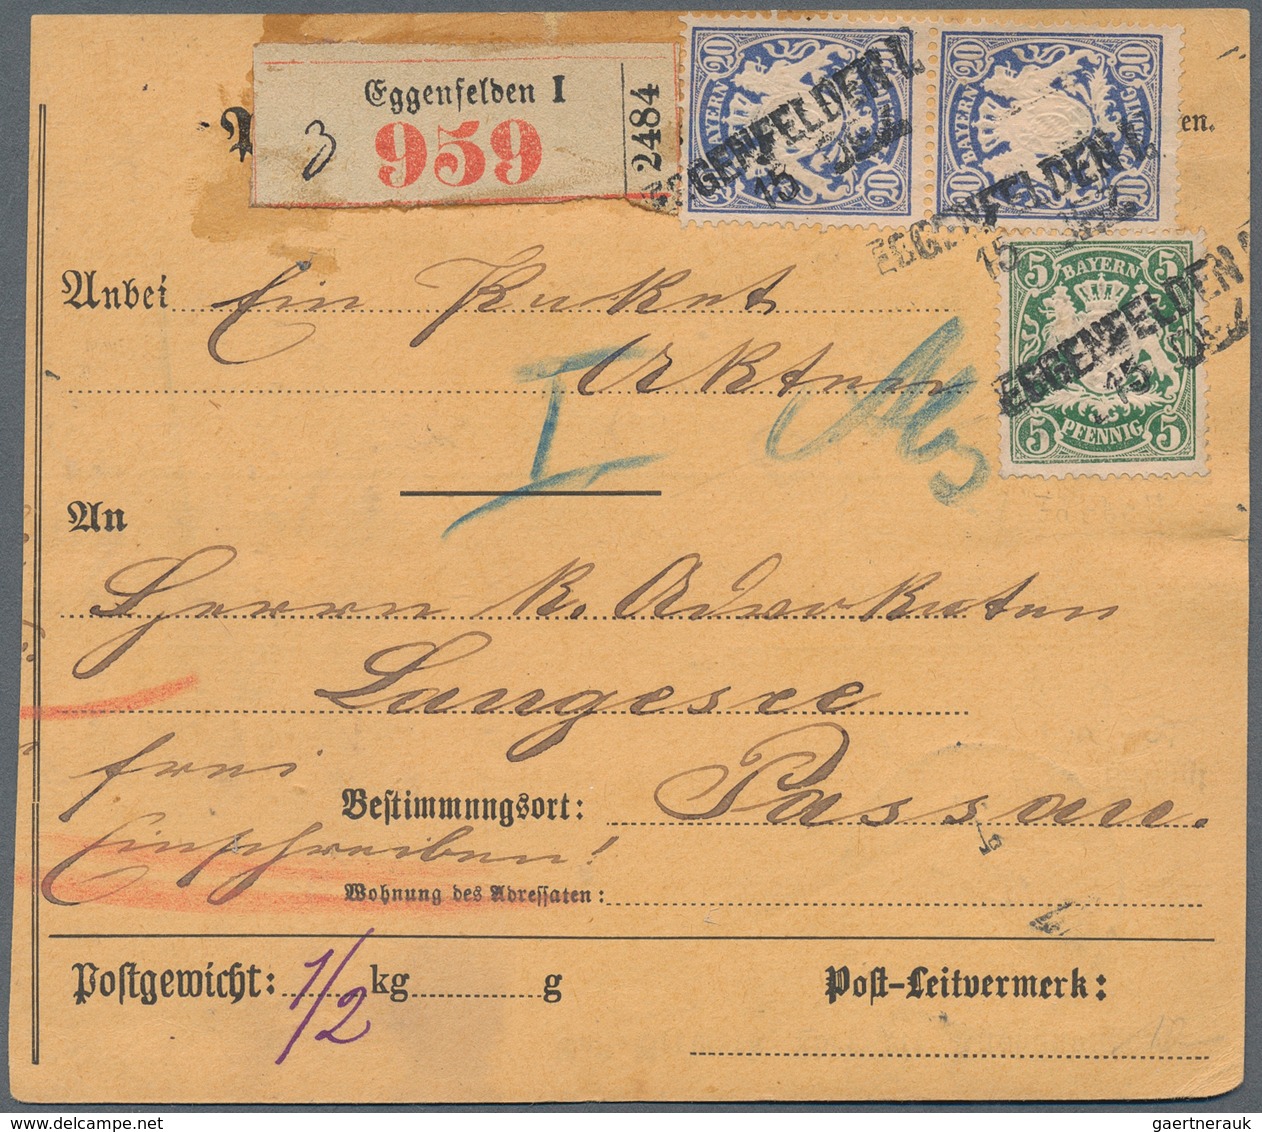 Eggenfelden I
3
959
2484
20 BAYERN 20
20 20
20 BAYERN 20
20 20
EGGENFELDEN I.
15 DEZ
EGGENFELDEN I.
15 DEZ
5 BAYERN 5
5 PFENNIG 5
EGGENFELDEN I
15 DEZ
en.
Anbei Ein Paket
Akten
I
An
Herrn k. Advokaten
Langesee
frei
Bestimmungsort: Passau.
Einschreiben!
Wohnung des Adressaten:
Postgewicht: 1/2 kg g
Post-Leitvermerk:
gaertnerauk